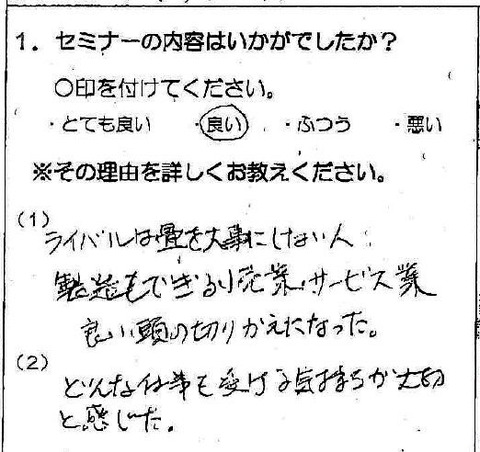 1. セミナーの内容はいかがでしたか？
○印を付けてください。
・とても良い ・良い ・ふつう ・悪い
※その理由を詳しくお教えください。
(1)
ライバルは畳を大事にしない人
製造もできる小売業、サービス業
良い頭の切りかえになった。
(2)
どんな仕事も受ける気持ちが大切
と感じた。